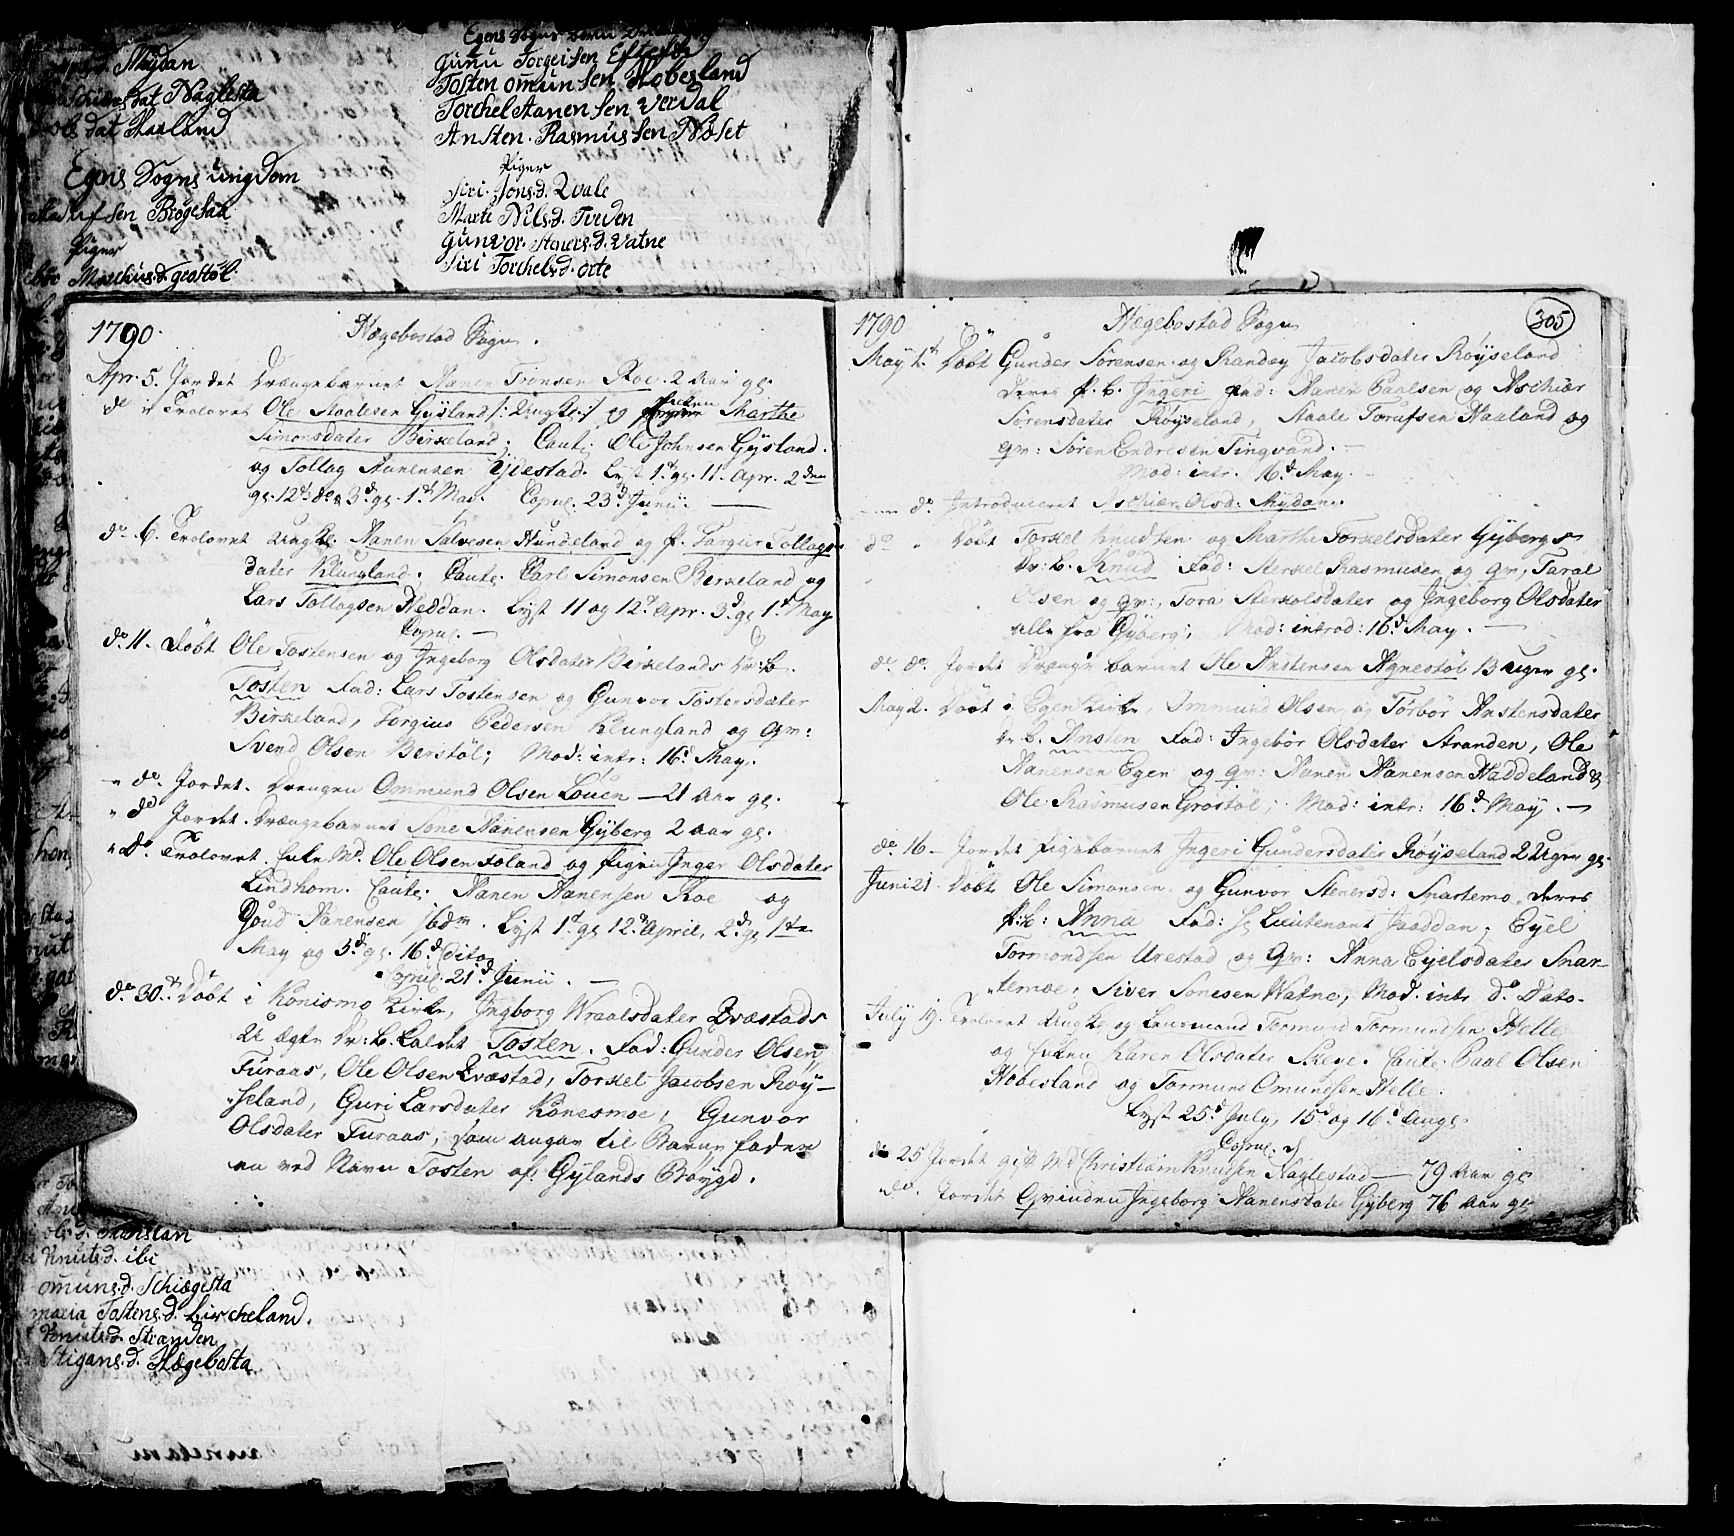 Mydan
dat Naglesta
dat Staaland
Egens Sogns ungdom
sen Brøgesaa
Piger
Maschus.d. grostøl
Egens Sogns
Gunu Torgeisen Eftestøl
Tosten omunsen Hobesland
Torchel Aanensen Verdal
Ansten Rasmussen Noset
Piger
Siri Jons.d. Qvale
Marte Nils.d. Tveden
Gunvor Steners.d. Vatne
Siri Torchels.d. Orte
1790. Hægebostad Sogn.
Apr. 5. Jordet Drængebarnet Aanen Tronsen Roe 2 Aar gl.
do Trolovet Ole Staalesen Gysland /: Ungk: / og Enken Marthe
Simonsdater Birkeland; Caut: Ole Johnsen Gysland
og Tollag Aanensen Ydestad. Lyst 1te gl. 11. Apr. 2den
gl. 12te do 3d gl. 1te May. Copul. 23d Junii.
do 6. Trolovet Ungk. Aanen Salvesen Hundeland og P. Torgier Tollags-
dater Klungland. Caut: Carl Simonsen Birkeland og
Lars Tollagsen Neddan. Lyst 11 og 12te Apr. 3d gl 1te May
Copul.
do 11. Døbt Ole Tostensen og Ingeborg Olsdater Birkelands Dr: b.
Tosten Fad: Lars Tostensen og Gunvor Tostensdater
Birkeland, Torgius Pedersen Klungland og Qv:
Svend Olsen Berstøl; Mod: intr: 16d May.
" do Jordet. Drengen Ommund Olsen Louen — 21 Aar gl.
" d Jordet. Drængebarnet Sone Aanensen Gyberg 2 aar gl.
" Do Trolovet. Enke Md. Ole Olsen Foland og Pigen Inger Olsdater
Lindhom. Caut: Aanen Aanensen Roe og
Goud Aanensen ibdm. Lyst 1te gl 12te April, 2d gl 1te
May og 3d gl. 16d Dito
Copul. 21d Junii.
do 30te Døbt i Konismo Kirke, Ingborg Wraalsdater Qvæstads
U ægte Dr: b. Kaldet Tosten. Fad: Gunder Olsen
Furaas, Ole Olsen Qvæstad, Torkel Jacobsen Røy-
seland, Guri Larsdater Konesmoe, Gunvor
Olsdater Furaas, som angav til Barne faderen
en ved Navn Tosten af Gylands Bøygd.
1790 Hægebostad Sogn 305
May 1te Døbt Gunder Sørensen og Randey Jacobsdater Røyseland
Deres P. b. Ingeri Fad: Aanen Paalsen og Aschier
Sørensdater Røyseland, Staale Torufsen Naaland og
qv: Søren Endresen Tingvand.
Mod: intr. 16d May.
do Introduceret Aschier Olsd: Mydan.
do " Døbt Torkel Knudsen og Marthe Torkelsdater Gybergs
Dr: b. Knud Fad: Sterkel Rasmusen og qv, Taral
Olsen og qv:, Tora Sterkelsdater og Ingeborg Olsdater
alle fra Gyberg; Mod: introd: 16d May.
do do Jordet Drænge barnet Ole Anstensen Agnestøl 3 uger gl.
May 2. Døbt i Egen Kirke, Ommund Olsen og Torbor Anstensdater
Dr b. Ansten Fad: Ingebor Olsdater Stranden, Ole
Aanensen Egen og qv: Aanen Aanensen Haddeland &
Ole Rasmusen Grostøl; Mod: intr: 16d May.
do 16 Jordet Pigebarnet Ingeri Gundersdater Røyseland 2 Uger gl.
Juni 21. Døbt Ole Simonsen og Gunvor Stenersd: Snartemo. deres
P. b: Anna Fad: Hr Lieutenant Faaddan, Eyel
Tormondsen Urestad og Qv: Anna Eyelsdater Snar-
temoe, Siver Sonesen Watne, Mod. intr do Dato.
July 19. Trolovet Ungk og Lensmand Tormund Tormundsen Helle
og Enken Karen Olsdater Skeye. Caut: Paal Olsen
Hobesland og Tormund Omundsen Helle.
Lyst 25d July, 15d og 16d Augl.
Copul. d
do 25 Jordet gift Md Christian Knudsen Naglestad — 79 Aar gl
" do. Jordet Qvinden Ingeborg Aanensdater Gyberg 76 Aar gl
ols.d.
Knuts.d. ibi
omuns.d. Schiægesta
maria Tostens.d. Lircheland.
Knuts.d. Stranden
Stigans.d. Hægebosta